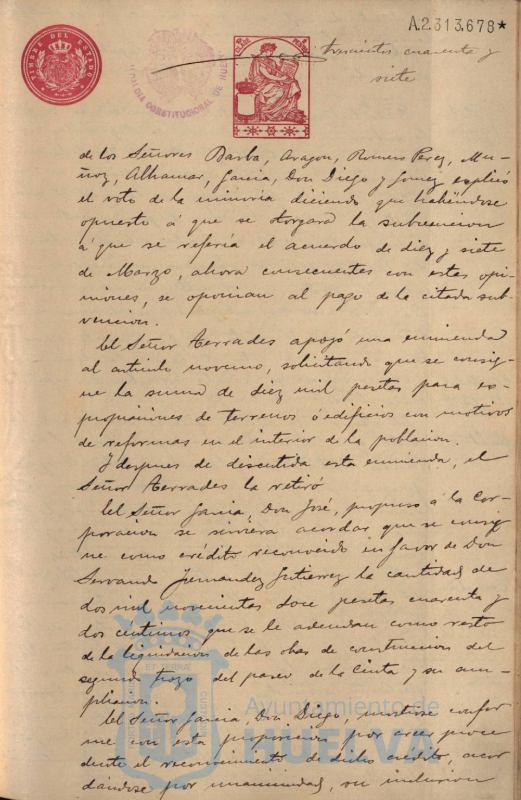 A.2.313.678*
TIMBRE DEL ESTADO
ALCALDIA CONSTITUCIONAL DE HUELVA
trescientos cuarenta y
siete
de los Señores Barba, Aragon, Romero Perez, Mu-
ñoz, Alhamar, Garcia, Don Diego y Gomez explicó
el voto de la minoria diciendo que habiéndose
opuesto á que se otorgara la subvencion
á que se referia el acuerdo de diez y siete
de Marzo, ahora consecuentes con estas opi-
niones, se oponian al pago de la citada sub-
vencion.
El Señor Terrades apoyó una enmienda
al articulo noveno, solicitando que se consig-
ne la suma de diez mil pesetas para ex-
propiaciones de terrenos ó edificios con motivos
de reformas en el interior de la poblacion.
Y despues de discutida esta enmienda, el
Señor Terrades la retiró
El Señor Garcia, Don José, propuso á la Cor-
poracion se sirviera acordar que se consig-
ne como crédito reconocido en favor de Don
Servando Fernandez Gutierrez la cantidad de
dos mil novecientas doce pesetas cuarenta y
dos centimos que se le adeudan como resto
de la liquidacion de las obras de construccion del
segundo trozo del paseo de la Cinta y su am-
pliacion.
El Señor Garcia, Don Diego, mostrose confor-
me con esta proposicion por creer proce-
dente el reconocimiento de dicho crédito, acor-
dandose por unanimidad, su inclusion
Ayuntamiento de
HUELVA